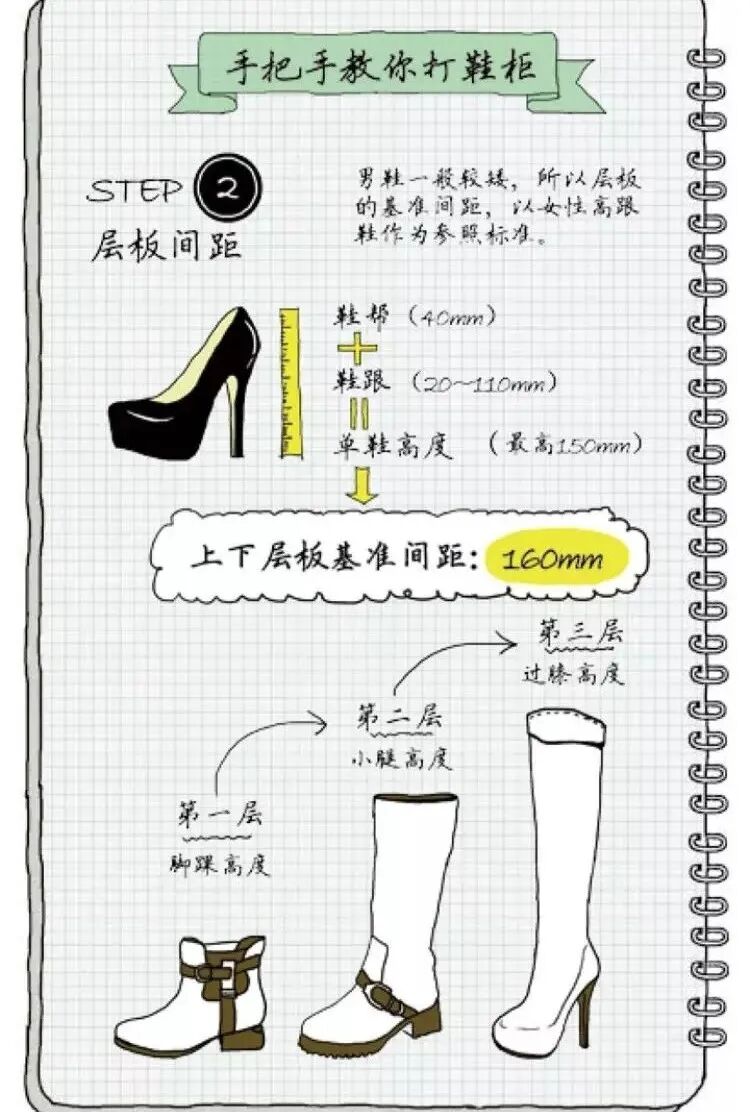 手把手教你打鞋柜
STEP 2
层板间距
男鞋一般较矮，所以层板
的基准间距，以女性高跟
鞋作为参照标准。
鞋帮（40mm）
+
鞋跟（20~110mm）
=
单鞋高度（最高150mm）
上下层板基准间距：160mm
第三层
过膝高度
第二层
小腿高度
第一层
脚踝高度